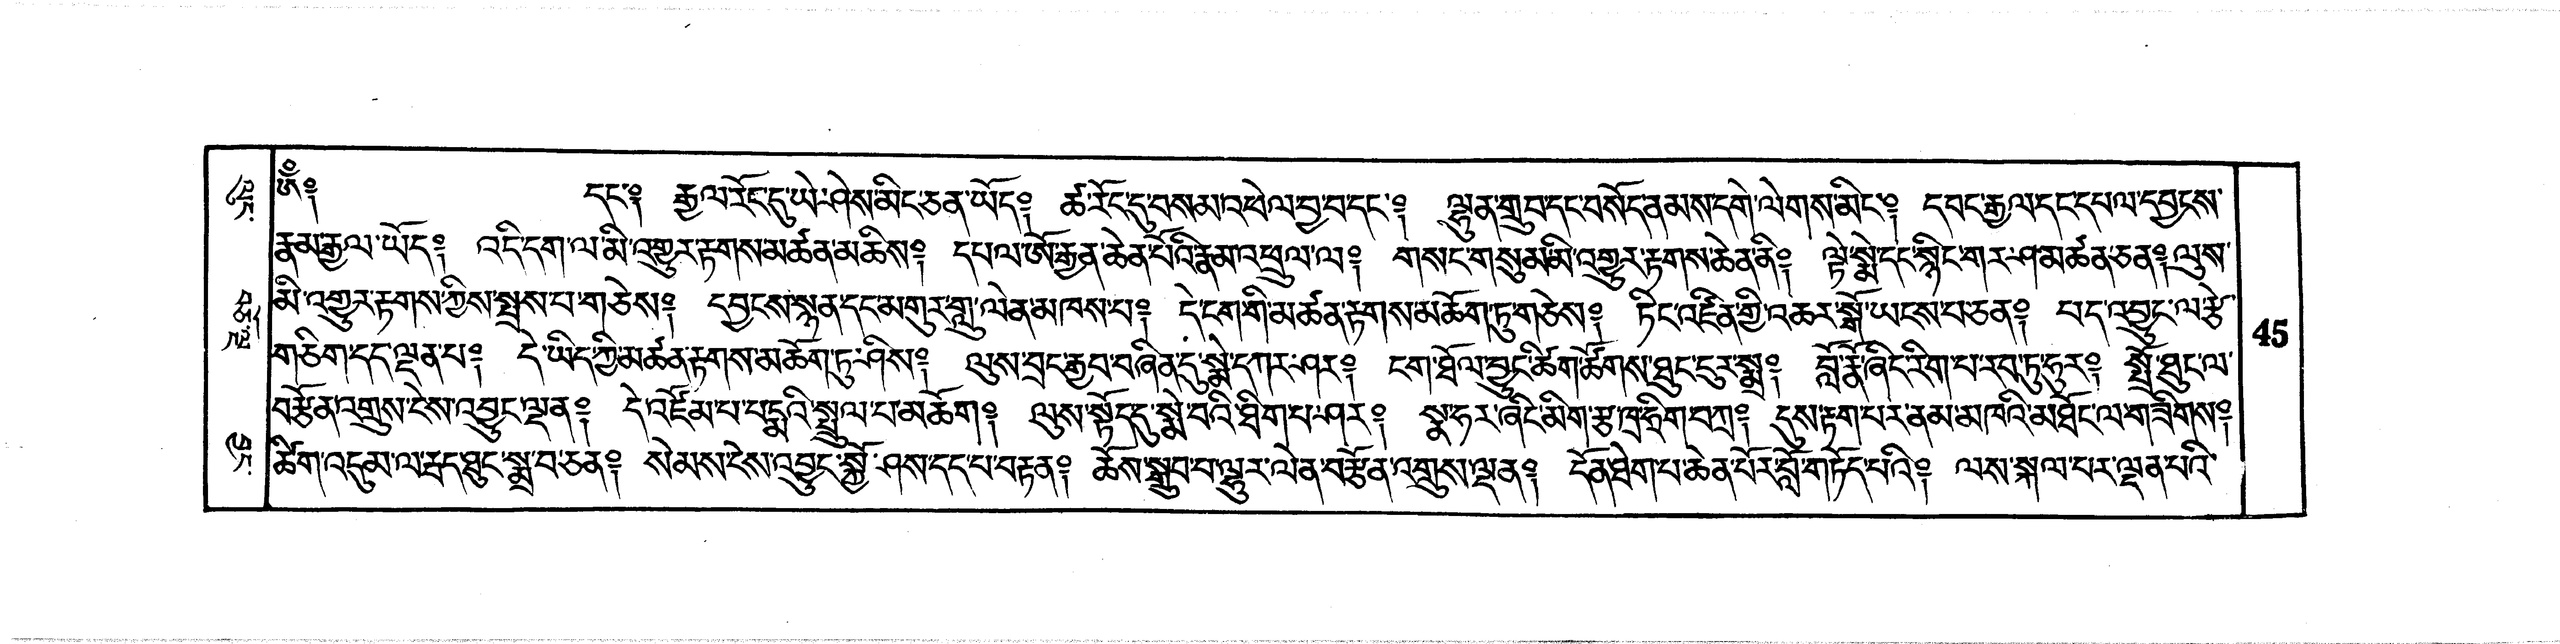 ༀ༔ དང་༔ རྒྱལ་རོང་དུ་ཡེ་ཤེས་མིང་ཅན་ཡོད༔ ཚ་རོང་དུ་བསམ་འཕེལ་བྱ་བ་དང་༔ ལྷུན་གྲུབ་དང་བསོད་ནམས་དགེ་ལེགས་མིང་༔ དབང་རྒྱལ་དང་དཔལ་དབྱངས་
རྣམ་རྒྱལ་ཡོད༔ འདི་དག་ལ་མི་འགྱུར་རྟགས་མཚན་མཆིས༔ དཔལ་ཨོ་རྒྱན་ཆེན་པོའི་རྣམ་འཕྲུལ་ལ༔ གསང་གསུམ་མི་འགྱུར་རྟགས་ཆེན་ནི༔ ལྟེ་སྨེ་དང་སྙིང་གར་ཤ་མཚན་ཅན༔ ལུས་
མི་འགྱུར་རྟགས་ཀྱིས་སྤྲས་པ་གཅེས༔ དབྱངས་སྙན་དང་མགུར་གླུ་ལེན་མཁས་པ༔ དེ་ངག་གི་མཚན་རྟགས་མཆོག་ཏུ་གཅེས༔ ཏིང་འཛིན་གྱི་འཆར་སྒོ་ཡངས་པ་ཅན༔ པད་འབྱུང་ལ་རྩེ་
གཅིག་དད་ལྡན་པ༔ དེ་ཡིད་ཀྱི་མཚན་རྟགས་མཆོག་ཏུ་ཤིས༔ ལུས་བྲང་རྒྱབ་བཞིན་དུ་སྨེ་དཀར་ཤར༔ ངག་ཐོལ་བྱུང་ཚིག་ཚོགས་ཐུང་ངུར་སྨྲ༔ བློ་རྣོ་ཞིང་རིག་པ་རབ་ཏུ་ཧུར༔ སྤྲོ་ཐུང་ལ་
བརྩོན་འགྲུས་ངེས་འབྱུང་ལྡན༔ དེ་འཛོམ་པ་པདྨའི་སྤྲུལ་པ་མཆོག༔ ལུས་སྟོད་དུ་སྨེ་བའི་ཐིག་པ་ཤར༔ སྣ་ཧར་ཞིང་མིག་རྩ་ཁྲ་ཧྲིག་བཀྲ༔ དུས་རྟག་པར་ནམ་མཁའི་མཐོང་ལ་གཟིགས༔
ཚིག་འདུམ་ལ་རྦད་ཐུང་སྨྲ་བ་ཅན༔ སེམས་ངེས་འབྱུང་སྐྱོ་ཤས་དད་པ་བརྟན༔ ཆོས་སྒྲུབ་པ་ལྷུར་ལེན་བརྩོན་འགྲུས་ལྡན༔ དོན་ཐེག་པ་ཆེན་པོར་བློ་གཏོད་པའི༔ ལས་སྐལ་པར་ལྡན་པའི་
45